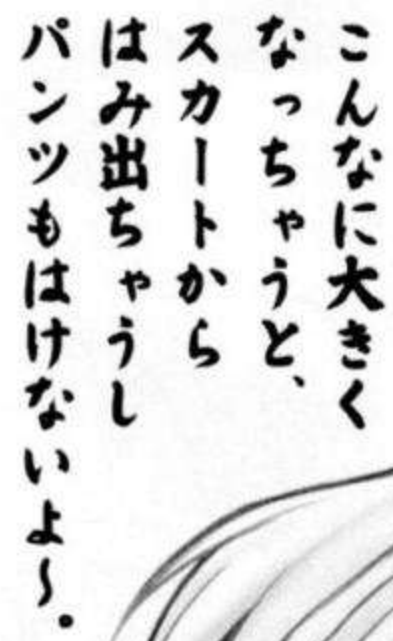 こんなに大きく
なっちゃうと、
スカートから
はみ出ちゃうし
パンツもはけないよ～。